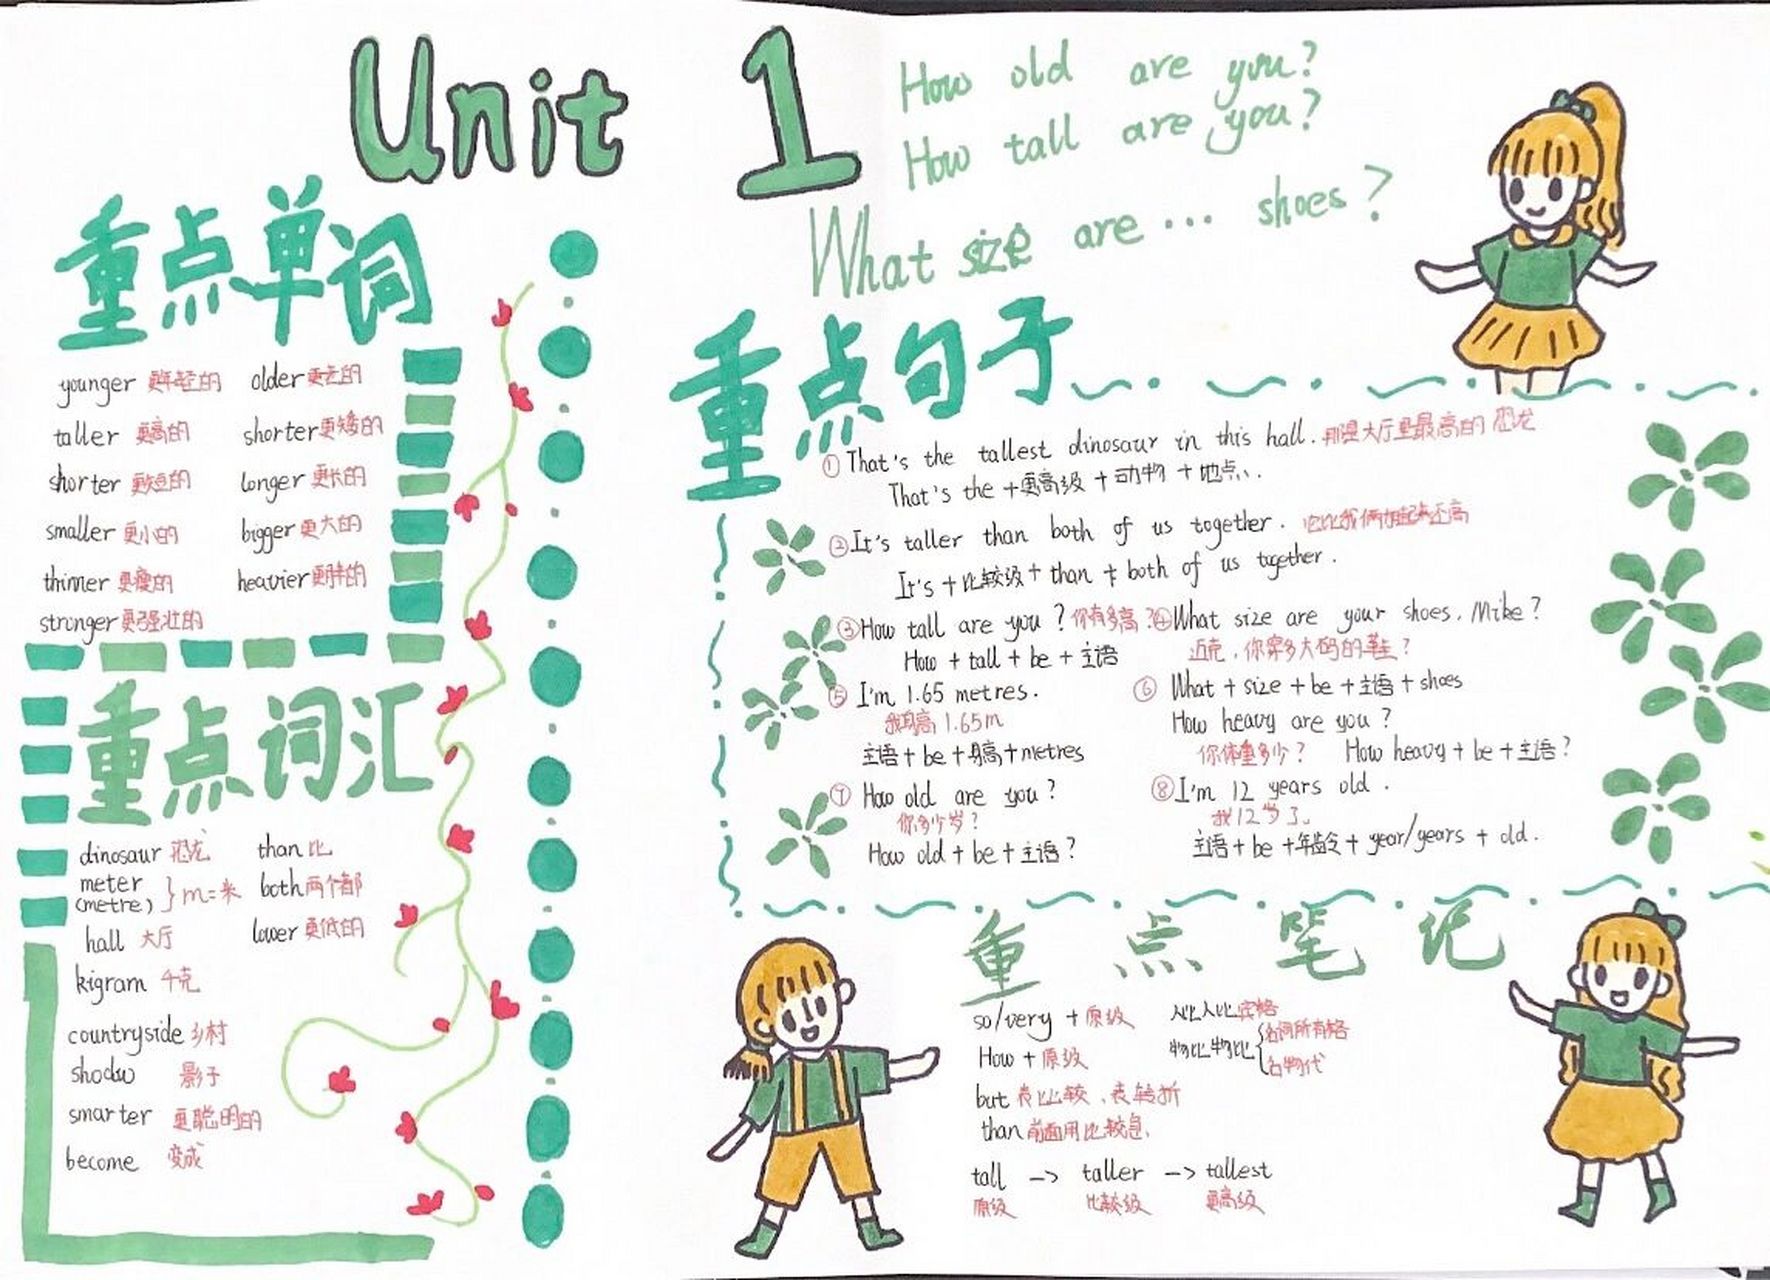 Unit 1
How old are you?
How tall are you?
What size are ... shoes?
重点单词
younger 更年轻的 older 更老的
taller 更高的 shorter 更矮的
shorter 更短的 longer 更长的
smaller 更小的 bigger 更大的
thinner 更瘦的 heavier 更胖的
stronger 更强壮的
重点词汇
dinosaur 恐龙 than 比
meter
(metre) } m=米 both 两个都
hall 大厅 lower 更低的
kigram 千克
countryside 乡村
shodw 影子
smarter 更聪明的
become 变成
重点句子
① That's the tallest dinosaur in this hall. 那是大厅里最高的恐龙
That's the + 更高级 + 动物 + 地点.
② It's taller than both of us together. 它比我俩加起来还高
It's + 比较级 + than + both of us together.
③ How tall are you? 你有多高? ④ What size are your shoes, Mike?
How + tall + be + 主语 迈克,你穿多大码的鞋?
⑤ I'm 1.65 metres. ⑥ What + size + be + 主语 + shoes
我身高1.65m How heavy are you?
主语 + be + 身高 + metres 你体重多少? How heavy + be + 主语?
⑦ How old are you? ⑧ I'm 12 years old.
你多少岁? 我12岁了。
How old + be + 主语? 主语 + be + 年龄 + year/years + old.
重点笔记
so/very + 原级 人比人比宾格
How + 原级 物比物比{名词所有格
名物代
but 表比较、表转折
than 前面用比较级.
tall -> taller -> tallest
原级 比较级 更高级